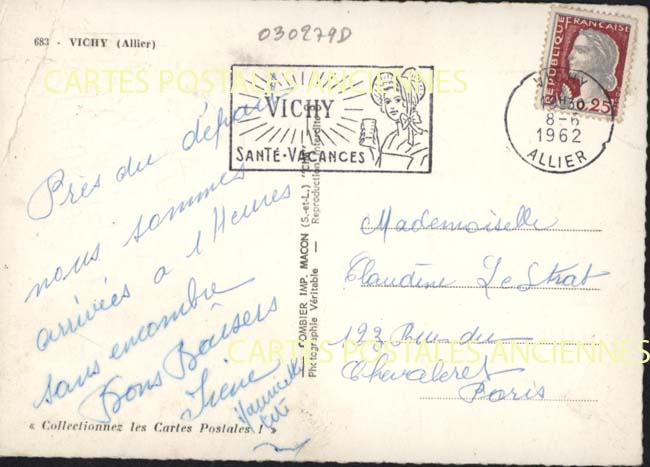 030279D
683 - VICHY (Allier)
CARTES POSTALES ANCIENNES
VICHY
SANTÉ-VACANCES
RÉPUBLIQUE FRANÇAISE
0,25
VICHY
8-6
1962
ALLIER
Près du départ
nous sommes
arrivées a 1 Heures
sans encombre
Bons Baisers
Irène
COMBIER IMP. MACON (S.-et-L.) "CIM"
Photographie Véritable — Reproduction interdite
Mademoiselle
Claudine Le Strat
193 Rue du
Chevaleret
Paris
CARTES POSTALES ANCIENNES
« Collectionnez les Cartes Postales ! »